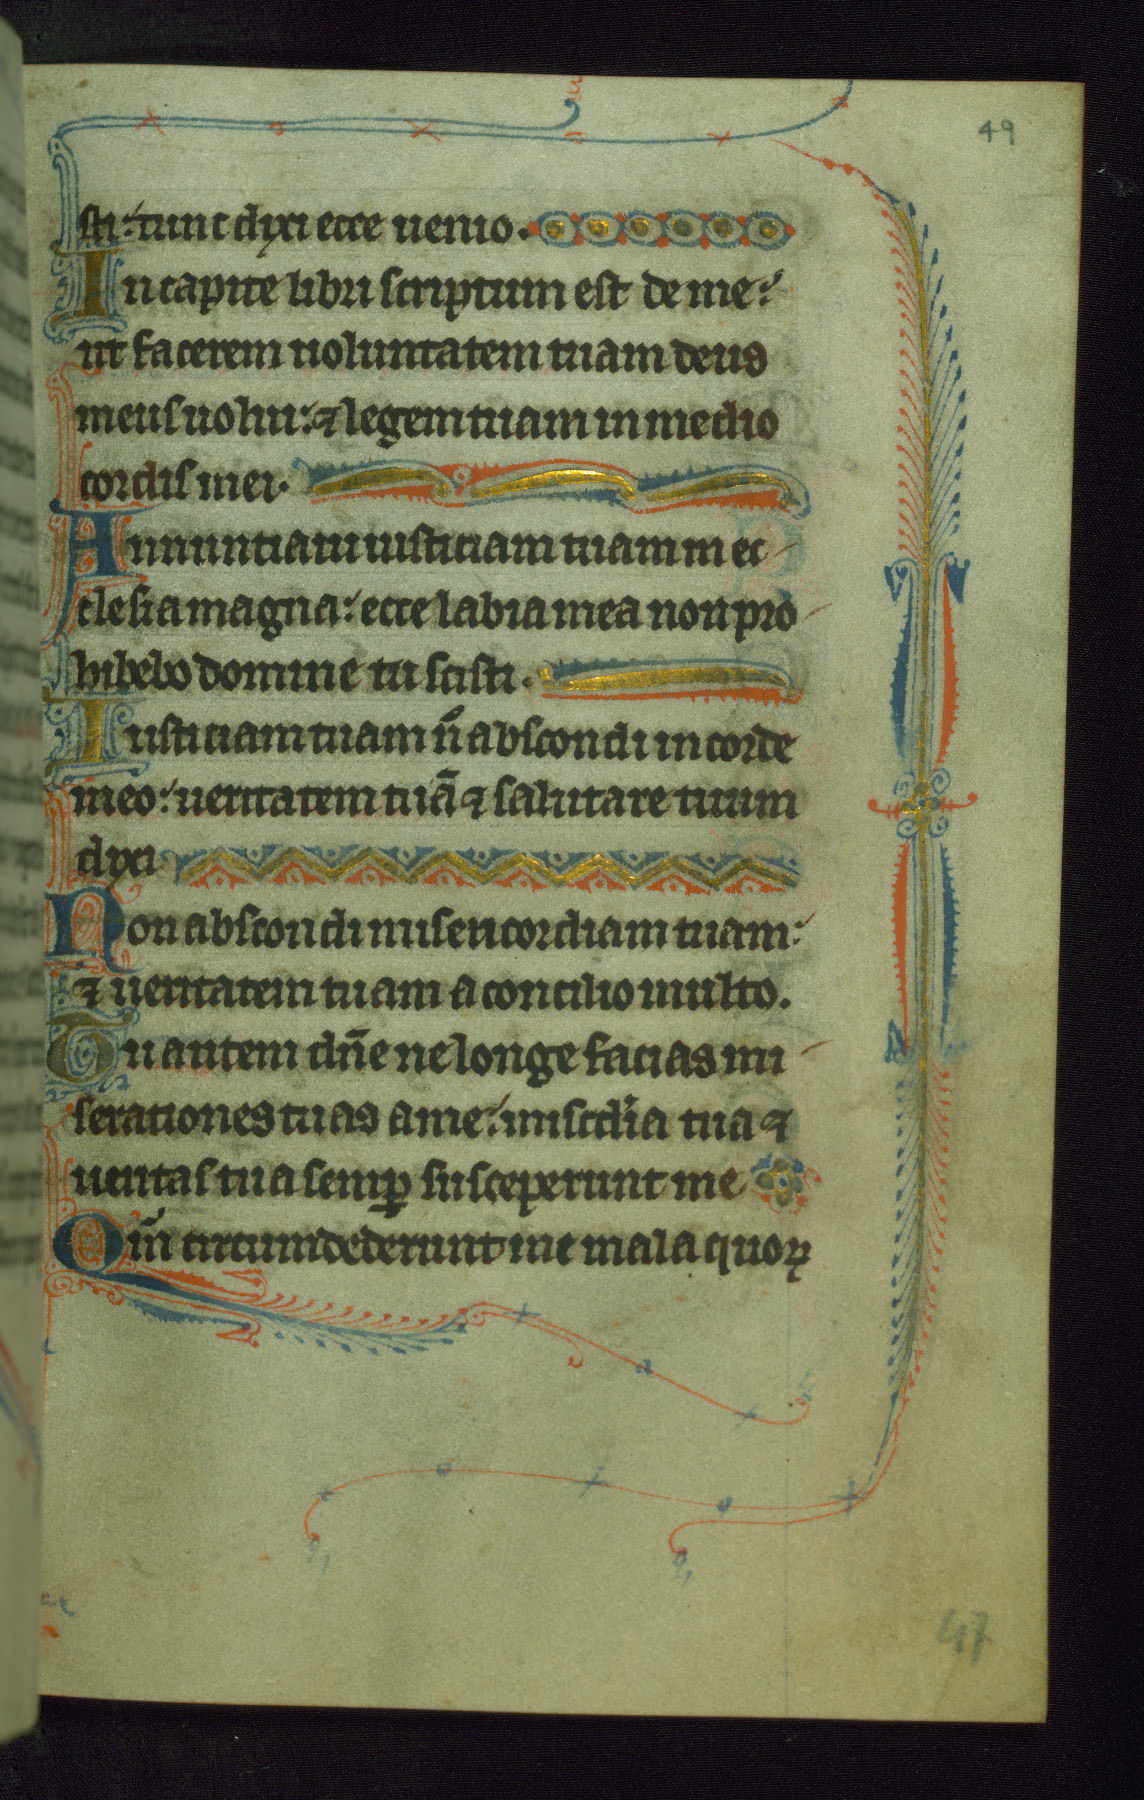 49
sti: tunc dixi ecce uenio.
In capite libri scriptum est de me:
ut facerem uoluntatem tuam deus
meus uolui: ⁊ legem tuam in medio
cordis mei.
Annuntiaui iusticiam tuam in ec-
clesia magna: ecce labia mea non pro-
hibebo domine tu scisti.
Iusticiam tuam n̄ abscondi in corde
meo: ueritatem tuā ⁊ salutare tuum
dixi
Non abscondi misericordiam tuam:
⁊ ueritatem tuam a concilio multo.
Tu autem dn̄e ne longe facias mi-
serationes tuas a me: miscd̄ia tua ⁊
ueritas tua semꝑ susceperunt me
Qm̄ circumdederunt me mala quoꝝ
47